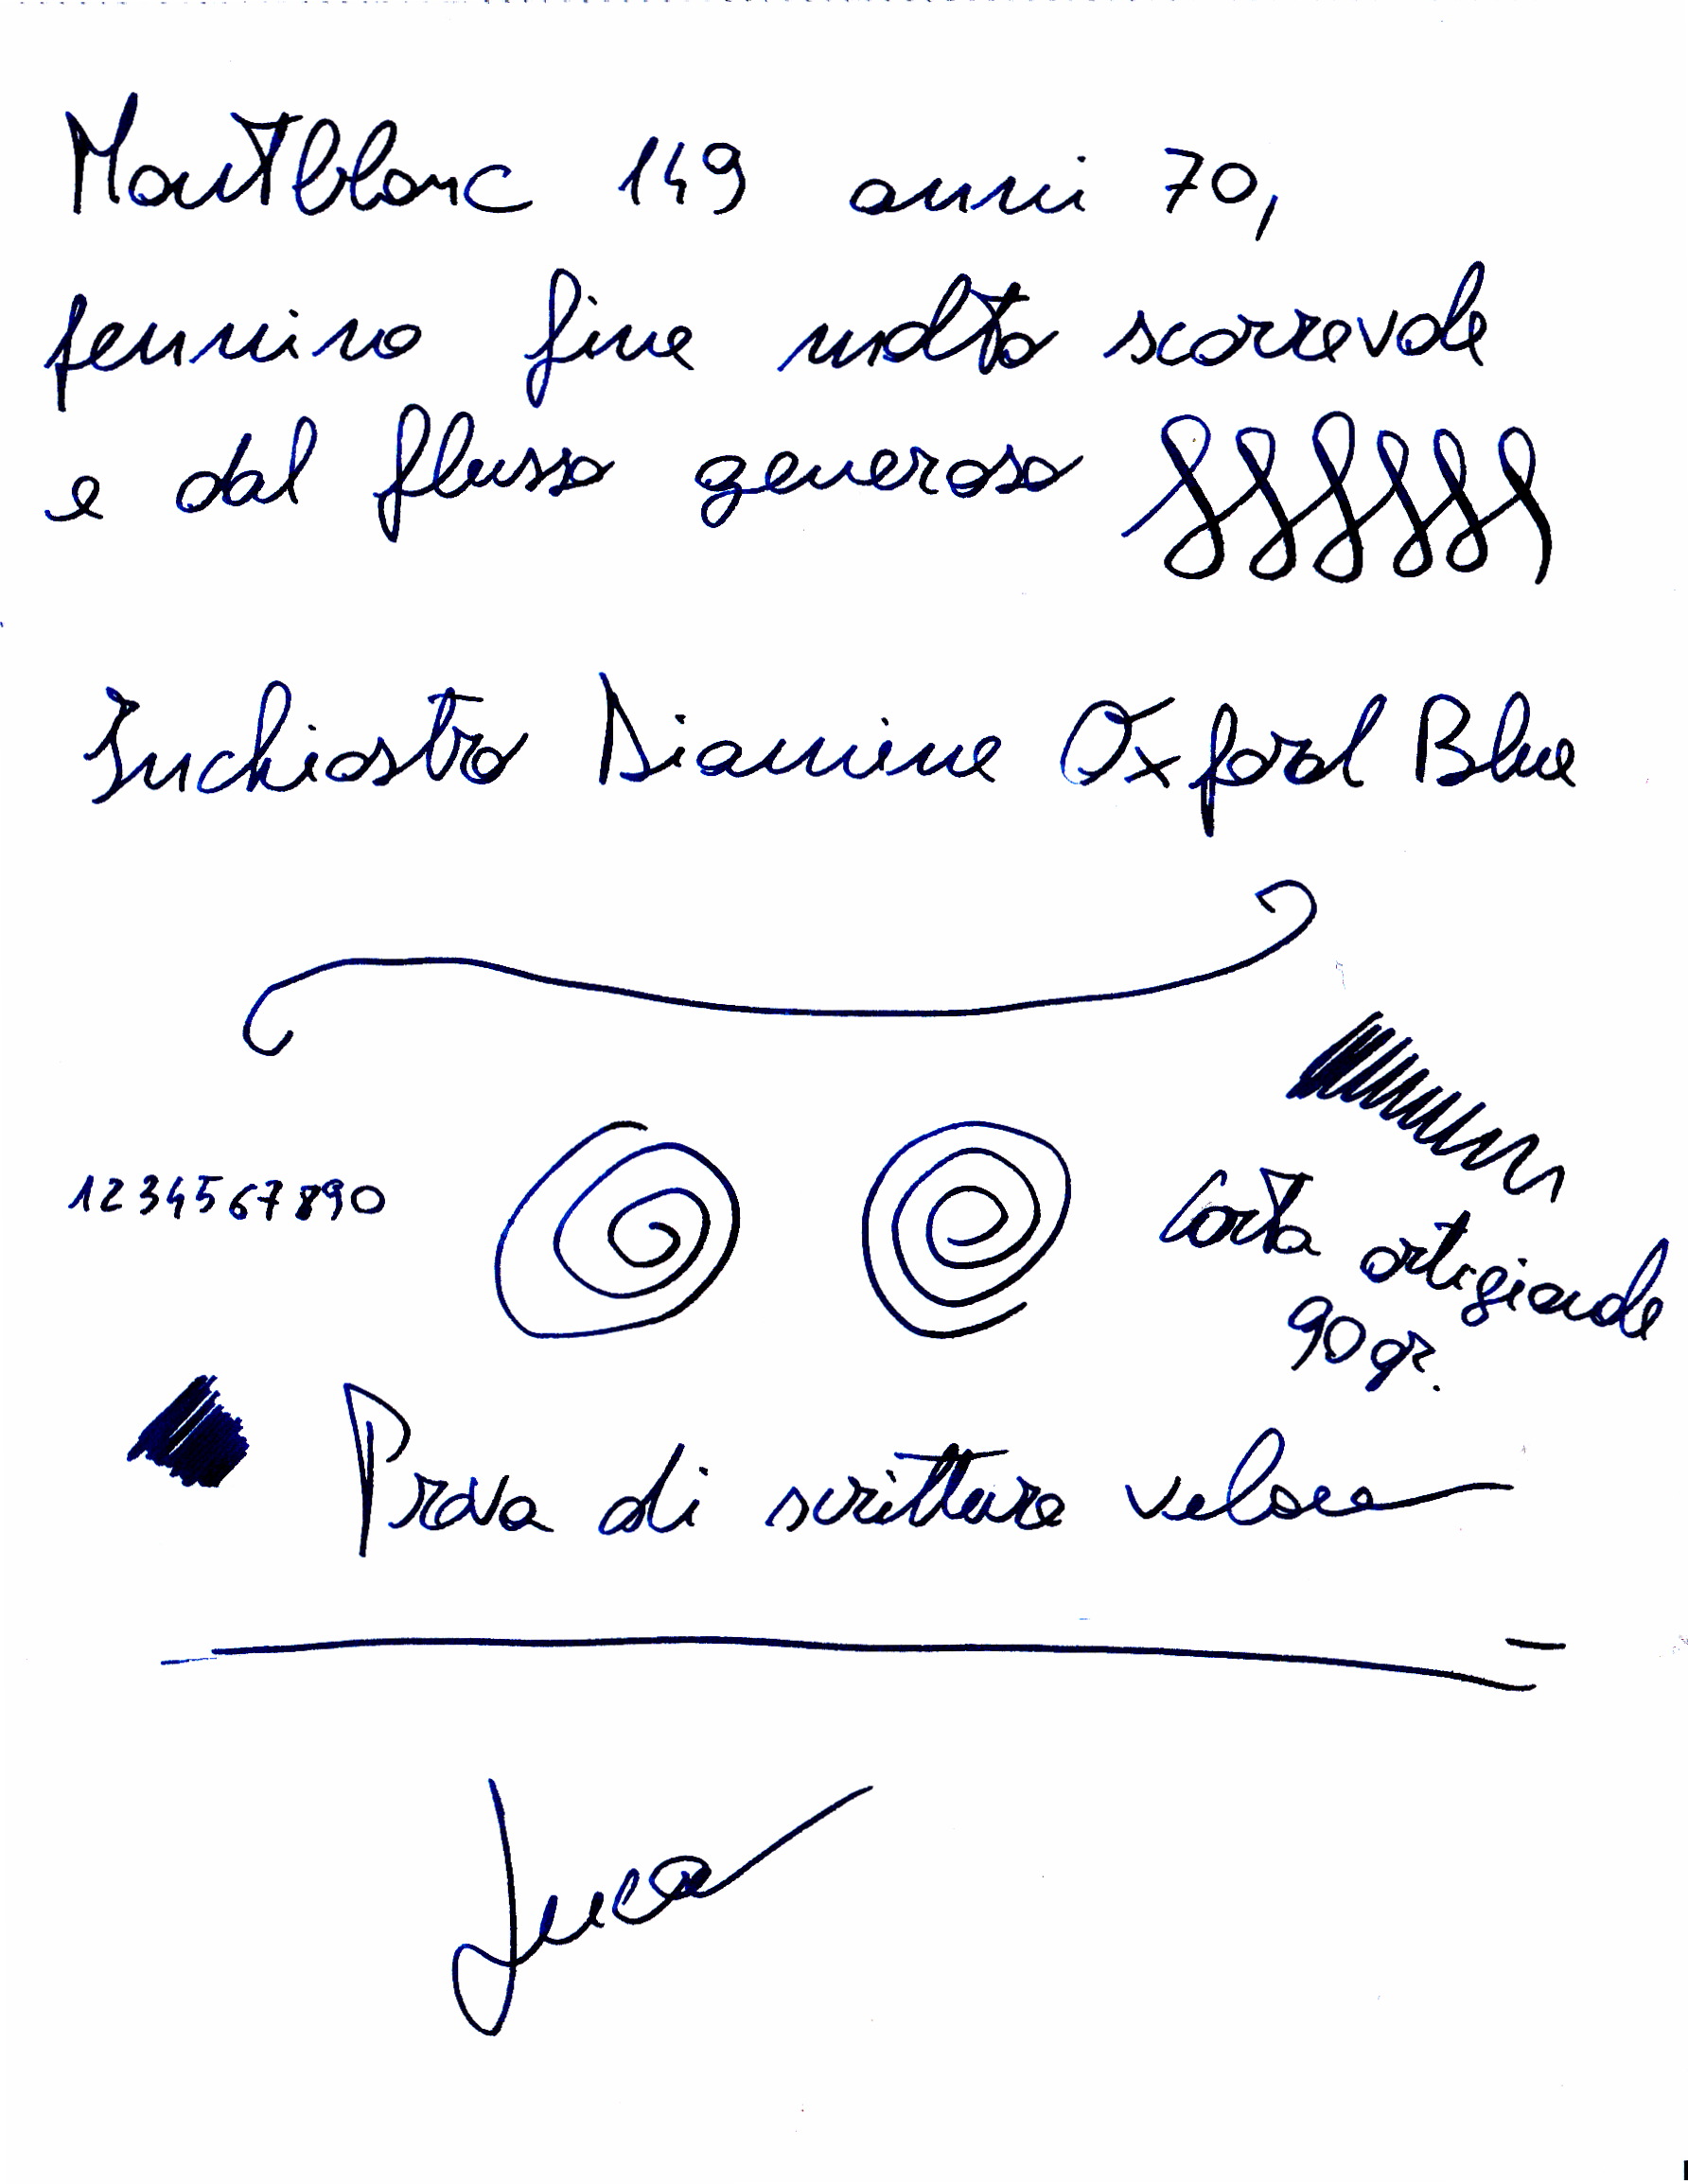 Montblanc 149 anni 70,
pennino fine molto scorrevole
e dal flusso generoso
Inchiostro Diamine Oxford Blue
1234567890
Carta artigianale
90 gr.
Prova di scrittura veloce
Luca